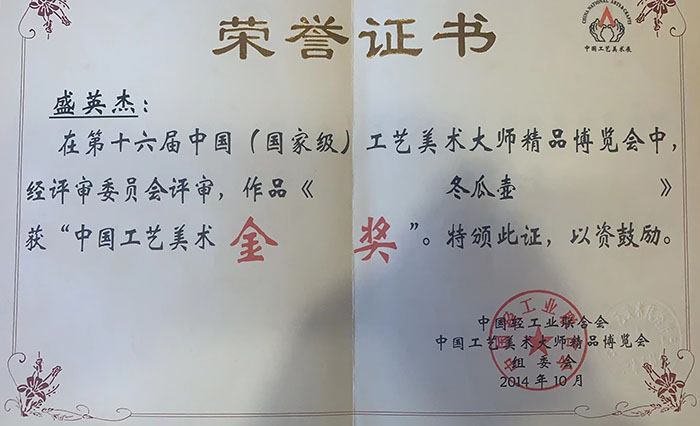 荣誉证书
CHINA NATIONAL ARTS&CRAFTS
中国工艺美术展
盛英杰：
在第十六届中国（国家级）工艺美术大师精品博览会中，
经评审委员会评审，作品《 冬瓜壶 》
获“中国工艺美术 金 奖”。特颁此证，以资鼓励。
中国轻工业联合会
中国工艺美术大师精品博览会
组委会
2014年10月